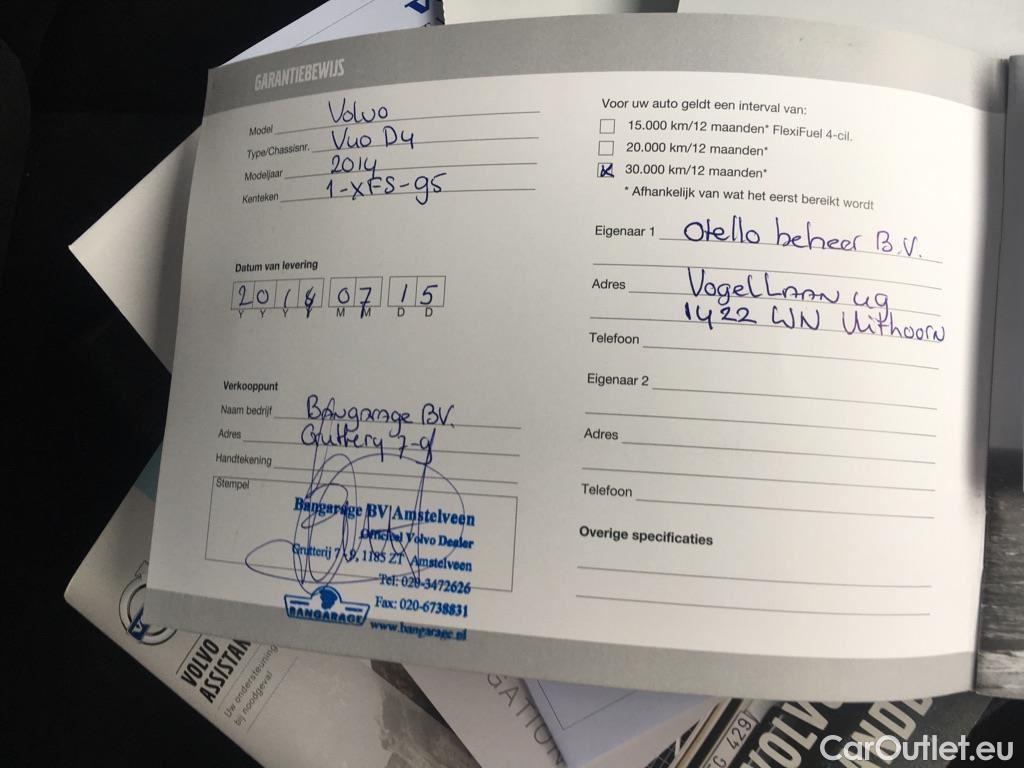 GARANTIEBEWIJS
Model Volvo
Type/Chassisnr. V40 D4
Modeljaar 2014
Kenteken 1-XFS-95
Datum van levering
2014 07 15
Y Y Y Y M M D D
Verkooppunt
Naam bedrijf Bangarage BV.
Adres Gruttery 7-9
Handtekening
Stempel
Bangarage BV Amstelveen
Officieel Volvo Dealer
Grutterij 7-9, 1185 ZT Amstelveen
Tel: 020-3472626
Fax: 020-6738831
BANGARAGE
www.bangarage.nl
Voor uw auto geldt een interval van:
15.000 km/12 maanden* FlexiFuel 4-cil.
20.000 km/12 maanden*
30.000 km/12 maanden*
* Afhankelijk van wat het eerst bereikt wordt
Eigenaar 1 Otello beheer B.V.
Adres Vogellaan 49
1422 WN Uithoorn
Telefoon
Eigenaar 2
Adres
Telefoon
Overige specificaties
VOLVO
Uw ondersteuning
bij noodgeval
429
CarOutlet.eu